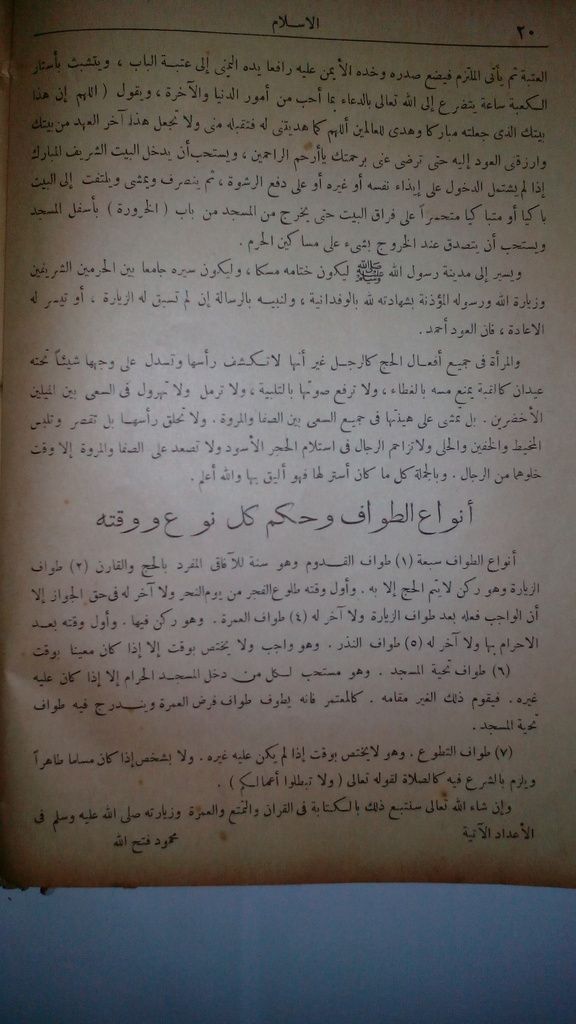 ٢٠
الاسلام
العتبة ثم يأتى الملتزم فيضع صدره وخده الأيمن عليه رافعا يده اليمنى إلى عتبة الباب ، ويتشبث بأستار
الكعبة ساعة يتضرع إلى الله تعالى بالدعاء بما أحب من أمور الدنيا والآخرة ، ويقول ( اللهم إن هذا
بيتك الذى جعلته مباركا وهدى للعالمين أللهم كما هديتنى له فتقبله منى ولا تجعل هذا آخر العهد من بيتك
وارزقنى العود إليه حتى ترضى عنى برحمتك ياأرحم الراحمين ، ويستحب أن يدخل البيت الشريف المبارك
إذا لم يشتمل الدخول على إيذاء نفسه أو غيره أو على دفع الرشوة ، ثم ينصرف ويمشى ويلتفت إلى البيت
باكيا أو متباكيا متحسراً على فراق البيت حتى يخرج من المسجد من باب ( الخرورة ) بأسفل المسجد
ويستحب أن يتصدق عند الخروج بشىء على مساكين الحرم .
ويسير إلى مدينة رسول الله ﷺ ليكون ختامه مسكا ، وليكون سيره جامعا بين الحرمين الشريفين
وزيارة الله ورسوله المؤذنة بشهادته لله بالوحدانية ، ولنبيه بالرسالة إن لم تسبق له الزيارة ، أو تيسر له
الاعادة ، فان العود أحمد .
والمرأة فى جميع أفعال الحج كالرجل غير أنها لا تكشف رأسها وتسدل على وجهها شيئاً تحته
عيدان كالقبة يمنع مسه بالغطاء ، ولا ترفع صوتها بالتلبية ، ولا ترمل ولا تهرول فى السعى بين الميلين
الأخضرين . بل تمشى على هيئتها فى جميع السعى بين الصفا والمروة . ولا تحلق رأسها بل تقصر وتلبس
المخيط والخفين والحلى ولا تزاحم الرجال فى استلام الحجر الأسود ولا تصعد على الصفا والمروة إلا وقت
خلوهما من الرجال . وبالجملة كل ما كان أستر لها فهو أليق بها والله أعلم .
أنواع الطواف وحكم كل نوع ووقته
أنواع الطواف سبعة (١) طواف القدوم وهو سنة للآفاقى المفرد بالحج والقارن (٢) طواف
الزيارة وهو ركن لايتم الحج إلا به . وأول وقته طلوع الفجر من يوم النحر ولا آخر له فى حق الجواز إلا
أن الواجب فعله بعد طواف الزيارة ولا آخر له (٤) طواف العمرة . وهو ركن فيها . وأول وقته بعد
الاحرام بها ولا آخر له (٥) طواف النذر . وهو واجب ولا يختص بوقت إلا إذا كان معينا بوقت
(٦) طواف تحية المسجد . وهو مستحب لكل من دخل المسجد الحرام إلا إذا كان عليه
غيره . فيقوم ذلك الغير مقامه . كالمعتمر فانه يطوف طواف فرض العمرة ويندرج فيه طواف
تحية المسجد .
(٧) طواف التطوع . وهو لايختص بوقت إذا لم يكن عليه غيره . ولا بشخص إذا كان مسلما طاهراً
ويلزم بالشرع فيه كالصلاة لقوله تعالى ( ولا تبطلوا أعمالكم ) .
وإن شاء الله تعالى سنتبع ذلك بالكتابة فى القران والتمتع والعمرة وزيارته صلى الله عليه وسلم فى
الأعداد الآتية
محمود فتح الله